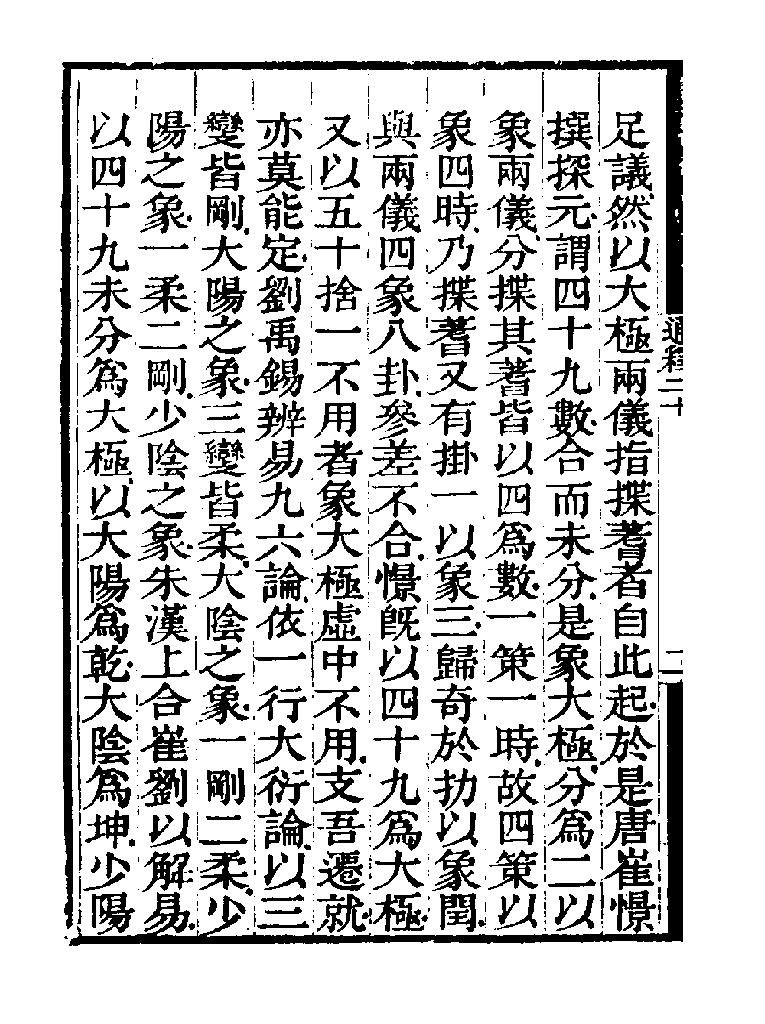 足議然以大極兩儀指揲蓍者自此起於是唐崔憬
撰探元謂四十九數合而未分是象大極分爲二以
象兩儀分揲其蓍皆以四爲數一策一時故四策以
象四時乃揲蓍又有掛一以象三歸奇於扐以象閏
與兩儀四象八卦參差不合憬既以四十九爲大極
又以五十捨一不用者象大極虛中不用支吾遷就
亦莫能定劉禹錫辨易九六論依一行大衍論以三
變皆剛大陽之象三變皆柔大陰之象一剛二柔少
陽之象一柔二剛少陰之象朱漢上合崔劉以解易
以四十九未分爲大極以大陽爲乾大陰爲坤少陽
通釋二十
二